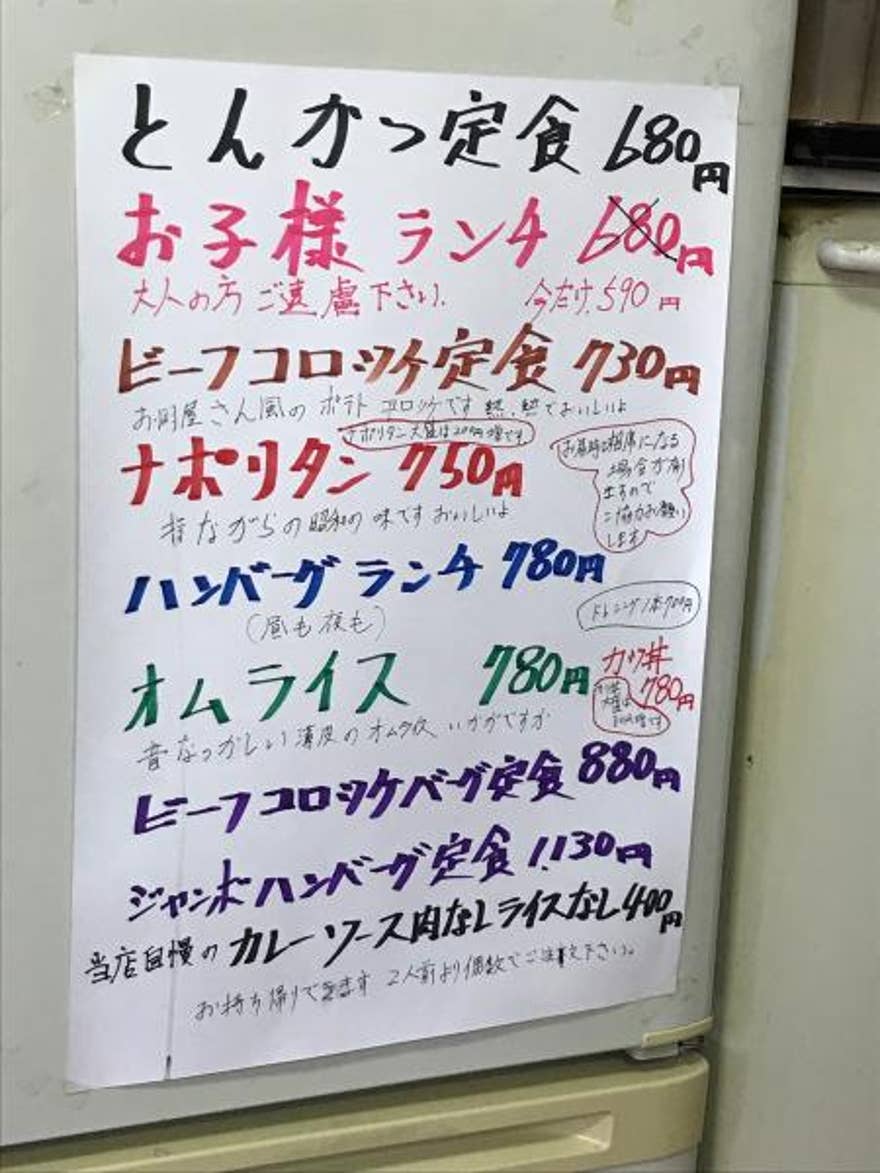 とんかつ定食 680円
お子様ランチ 680円
大人の方ご遠慮下さい. 今だけ590円
ビーフコロッケ定食 730円
お肉屋さん風のポテトコロッケです 熱、熱でおいしいよ
ナポリタン大盛は200円増です
ナポリタン 750円
昔ながらの昭和の味です おいしいよ
お昼時は相席になる
場合が有
ますので
ご協力お願い
します
ハンバーグランチ 780円
(昼も夜も)
オムライス 780円
昔なつかしい薄皮のオムライス いかがですか
カツ丼
780円
大盛は
ビーフコロッケバーグ定食 880円
ジャンボハンバーグ定食 1,130円
当店自慢の カレーソース肉なしライスなし400円
お持ち帰りできます 2人前より個数でご注文下さい。